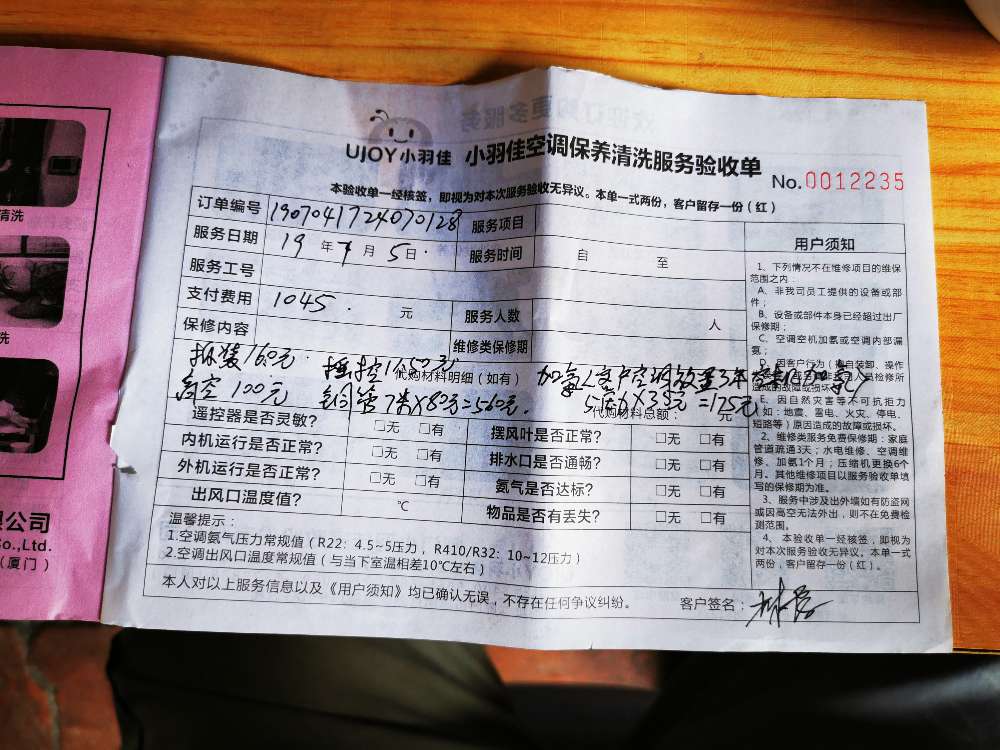 清洗
洗
限公司
Co.,Ltd.
（厦门）
UJOY小羽佳 小羽佳空调保养清洗服务验收单
No.0012235
本验收单一经核签，即视为对本次服务验收无异议。本单一式两份，客户留存一份（红）
订单编号 1907041724070128 服务项目
服务日期 19年7月5日 服务时间 自 至
服务工号
支付费用 1045. 元 服务人数 人
保修内容 维修类保修期
拆装160元. 摇控1个50元
代购材料明细（如有）
加氟（客户空调放置3年
高空100元 铜管7米X80元=560元. 5压力X35元=175元
代购材料总额： 元
遥控器是否灵敏？ □无 □有 摆风叶是否正常？ □无 □有
内机运行是否正常？ □无 □有 排水口是否通畅？ □无 □有
外机运行是否正常？ □无 □有 氨气是否达标？ □无 □有
出风口温度值？ ℃ 物品是否有丢失？ □无 □有
温馨提示：
1.空调氨气压力常规值（R22：4.5~5压力，R410/R32：10~12压力）
2.空调出风口温度常规值（与当下室温相差10℃左右）
本人对以上服务信息以及《用户须知》均已确认无误，不存在任何争议纠纷。 客户签名：
用户须知
1、下列情况不在维修项目的维保
范围之内：
A、非我司员工提供的设备或部
件；
B、设备或部件本身已经超过出厂
保修期；
C、空调空机加氨或空调内部漏
氨；
D、因客户行为（擅自装卸、操作
人员检修所
造成的故障或损坏
E、因自然灾害等不可抗拒力
（如：地震、雷电、火灾、停电、
短路等）原因造成的故障或损坏。
2、维修类服务免费保修期：家庭
管道疏通3天；水电维修、空调维
修、加氨1个月；压缩机更换6个
月。其他维修项目以服务验收单填
写的保修期为准。
3、服务中涉及出外墙如有防盗网
或因高空无法外出，则不在免费检
测范围。
4、本验收单一经核签，即视为
对本次服务验收无异议。本单一式
两份，客户留存一份（红）。